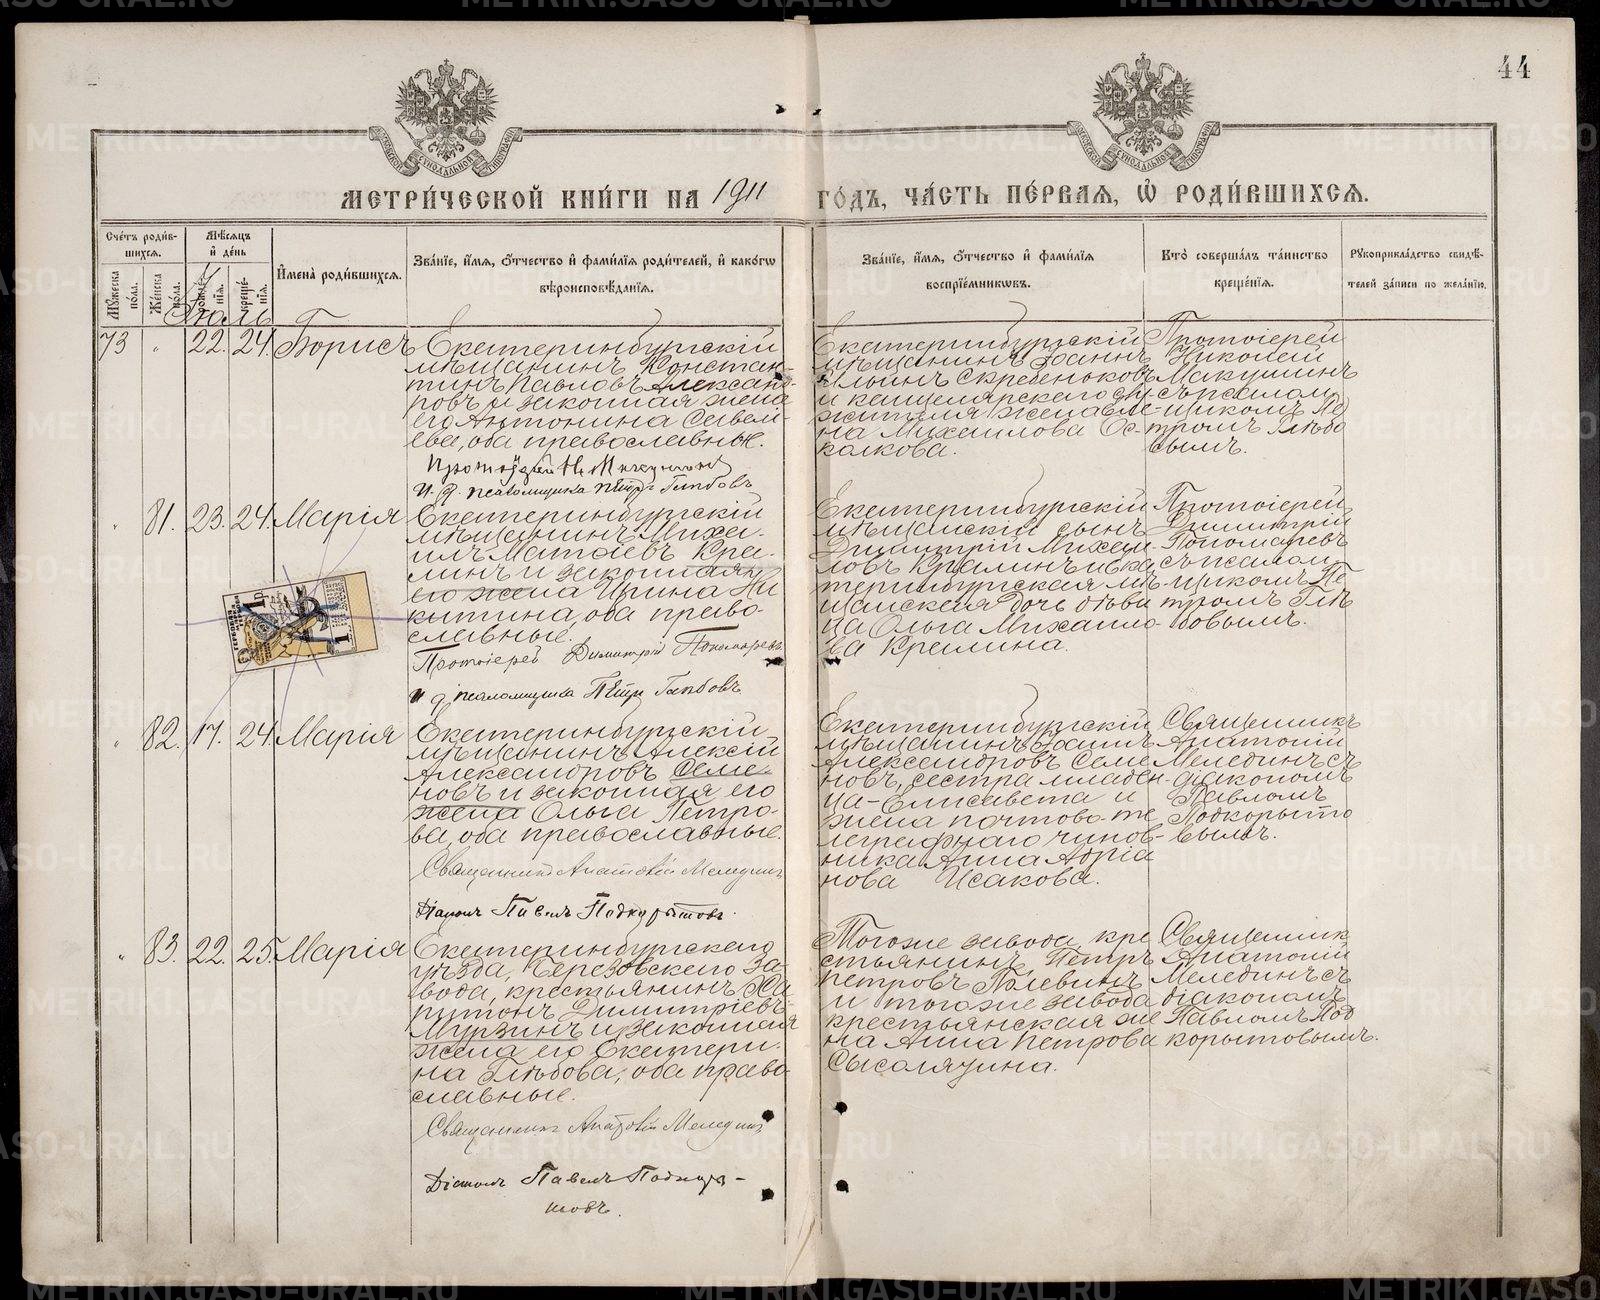 44
МЕТРИ́ЧЕСКОЙ КНИ́ГИ НА 1911 ГО́ДЪ, ЧА́СТЬ ПЕ́РВАЯ, Ѡ РОДИ́ВШИХСЯ.
Сче́тъ роди́в-
шихся.
Му́жеска по́ла.
Же́нска по́ла.
Мѣ́сяцъ
и де́нь
рожде́нія.
креще́нія.
Имена̀ роди́вшихся.
Зва́ніе, и́мя, о́тчество и фами́лія роди́телей, и како́гѡ
вѣроисповѣ́данія.
Зва́ніе, и́мя, о́тчество и фами́лія
воспріе́мниковъ.
Кто̀ соверша́лъ та́инство
креще́нія.
Рукоприкла́дство свидѣ́-
телей за́писи по жела́нію.
Іюль
73 " 22. 24. Борисъ
Екатеринбургскій
мѣщанинъ Констан-
тинъ Павловъ Александ-
ровъ и законная жена
его Антонина Савель-
ева, оба православные.
Протоіерей Н. Макушинъ
И. д. псаломщика Петръ Глѣбовъ
Екатеринбургскій
мѣщанинъ Іоаннъ
Ильинъ Скребеньковъ
и канцелярскаго слу-
жителя жена Еле-
на Михаилова Ос-
колкова.
Протоіерей
Николай
Макушинъ
съ псалом
щикомъ Пе
тромъ Глѣбо
вымъ.
" 81. 23. 24. Марія
Екатеринбургскій
мѣщанинъ Миха-
илъ Матѳіевъ Кра-
линъ и законная
его жена Ирина Ни
китина, оба право-
славные.
Протоіерей Димитрій Пономаревъ
и д псаломщика Петръ Глѣбовъ
Екатеринбургскій
мѣщанскій сынъ
Димитрій Михаи-
ловъ Кралинъ и Ека
теринбургская мѣ-
щанская дочь дѣви
ца Ольга Михаило-
ва Кралина.
Протоіерей
Димитрій
Пономаревъ
съ псалом
щикомъ Пе
тромъ Глѣ
бовымъ.
" 82. 17. 24. Марія
Екатеринбургскій
мѣщанинъ Алексій
Александровъ Семе-
новъ и законная его
жена Ольга Петро-
ва, оба православные.
Священникъ Анатолій Мелединъ
Діаконъ Павелъ Подкорытовъ.
Екатеринбургскій
мѣщанинъ Іоаннъ
Александровъ Семе
новъ, сестра младен-
ца - Елисавета и
жена почтово-те
леграфнаго чинов-
ника Анна Адріа
нова Исакова.
Священникъ
Анатолій
Мелединъ съ
діакономъ
Павломъ
Подкорыто
вымъ.
" 83. 22. 25. Марія
Екатеринбургскаго
уѣзда, Березовскаго за-
вода, крестьянинъ Ха
ритонъ Димитріевъ
Мурзинъ и законная
жена его Екатери-
на Глѣбова, оба право
славные.
Священникъ Анатолій Мелединъ
Діаконъ Павелъ Подкоры-
товъ.
Тогоже завода, кре
стьянинъ Петръ
Петровъ Полевинъ
и тогоже завода
крестьянская же
на Анна Петрова
Сысолятина.
Священник
Анатолій
Мелединъ съ
діакономъ
Павломъ Под
корытовымъ.